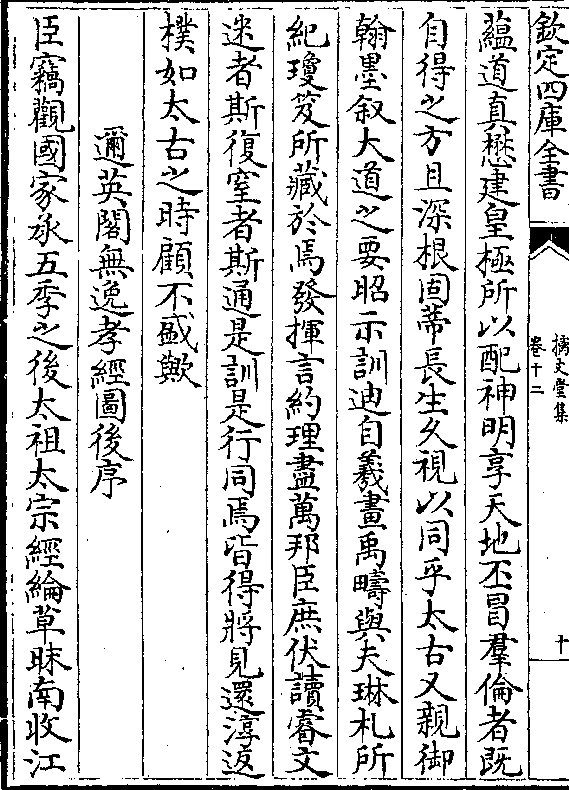 欽定四庫全書
摛文堂集
卷十二
十
蘊道真懋建皇極所以配神明享天地丕冒羣倫者既
自得之方且深根固蔕長生久視以同乎太古又親御
翰墨叙大道之要昭示訓迪自羲畫禹疇與夫琳札所
紀瓊笈所藏於焉發揮言約理盡萬邦臣庶伏讀睿文
迷者斯復窒者斯通是訓是行同焉皆得將見還淳返
樸如太古之時顧不盛歟
邇英閣無逸孝經圖後序
臣竊觀國家承五季之後太祖太宗經綸草昧南收江